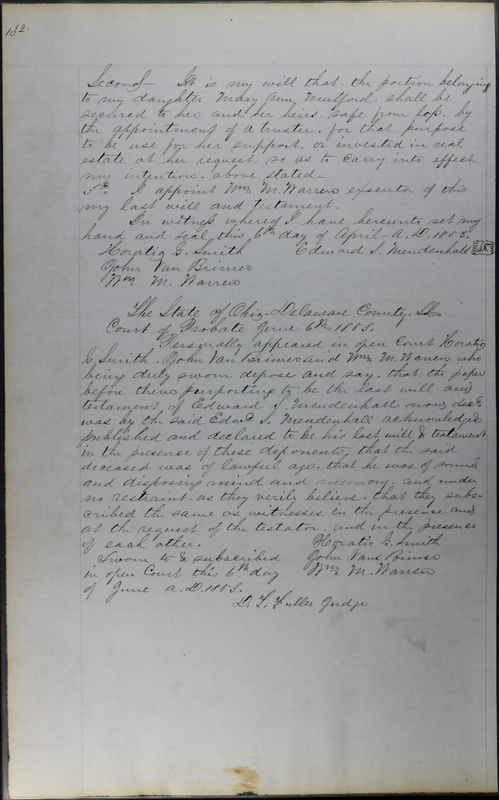 132
Second It is my will that the portion belonging
to my daughter Mary Ann Mulford shall be
secured to her and her heirs safe from loss. by
the appointment of a trustee. for that purpose
to be use for her support. or invested in real
estate at her request. so as to carry into effect
my intention. above stated—
I appoint Wm. M. Warren exsentor of this
my last will and testament.
In witness whereof I have hereunto set my
hand and seal this 6th day of April A.D. 1853.
Horatio G. Smith Edward S. Mendenhall
John Van Brimer
Wm. M. Warren
The State of Ohio Delaware County. SS.
Court of Probate June 6th 1853.
Personally appeared in open Court Horatio
G. Smith. John Van Brimer and Wm. M. Warren who
being duly sworn depose and say. that the paper
before them purporting to be the last will and
testament of Edward S. Mendenhall now decd.
was by the said Edwd. S. Mendenhall acknowledged
published and declared to be his last will & testament
in the presense of these deponents, that the said
deceased was of lawful age. that he was of sound
and disposing mind and memory. and under
no restraint. as they verily believe. that they subs-
cribed the same as witnesses in the presense and
at the request of the testator. and in the presense
of each other. Horatio G. Smith
Sworn to & subscribed John Van Brimer
in open Court this 6th day Wm. M. Warren
of June A.D. 1853.
D. T. Fuller Judge